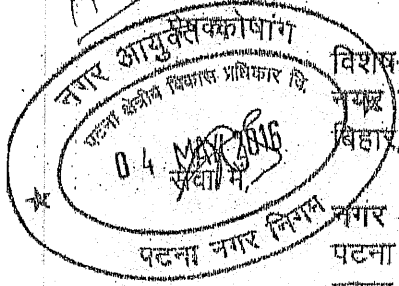 नगर आयुक्त कोषांग
पटना क्षेत्रीय विकास प्राधिकार वि.
04 MAY 2016
पटना नगर निगम
विशेष
नगर
बिहार,
सेवा में,
नगर
पटना